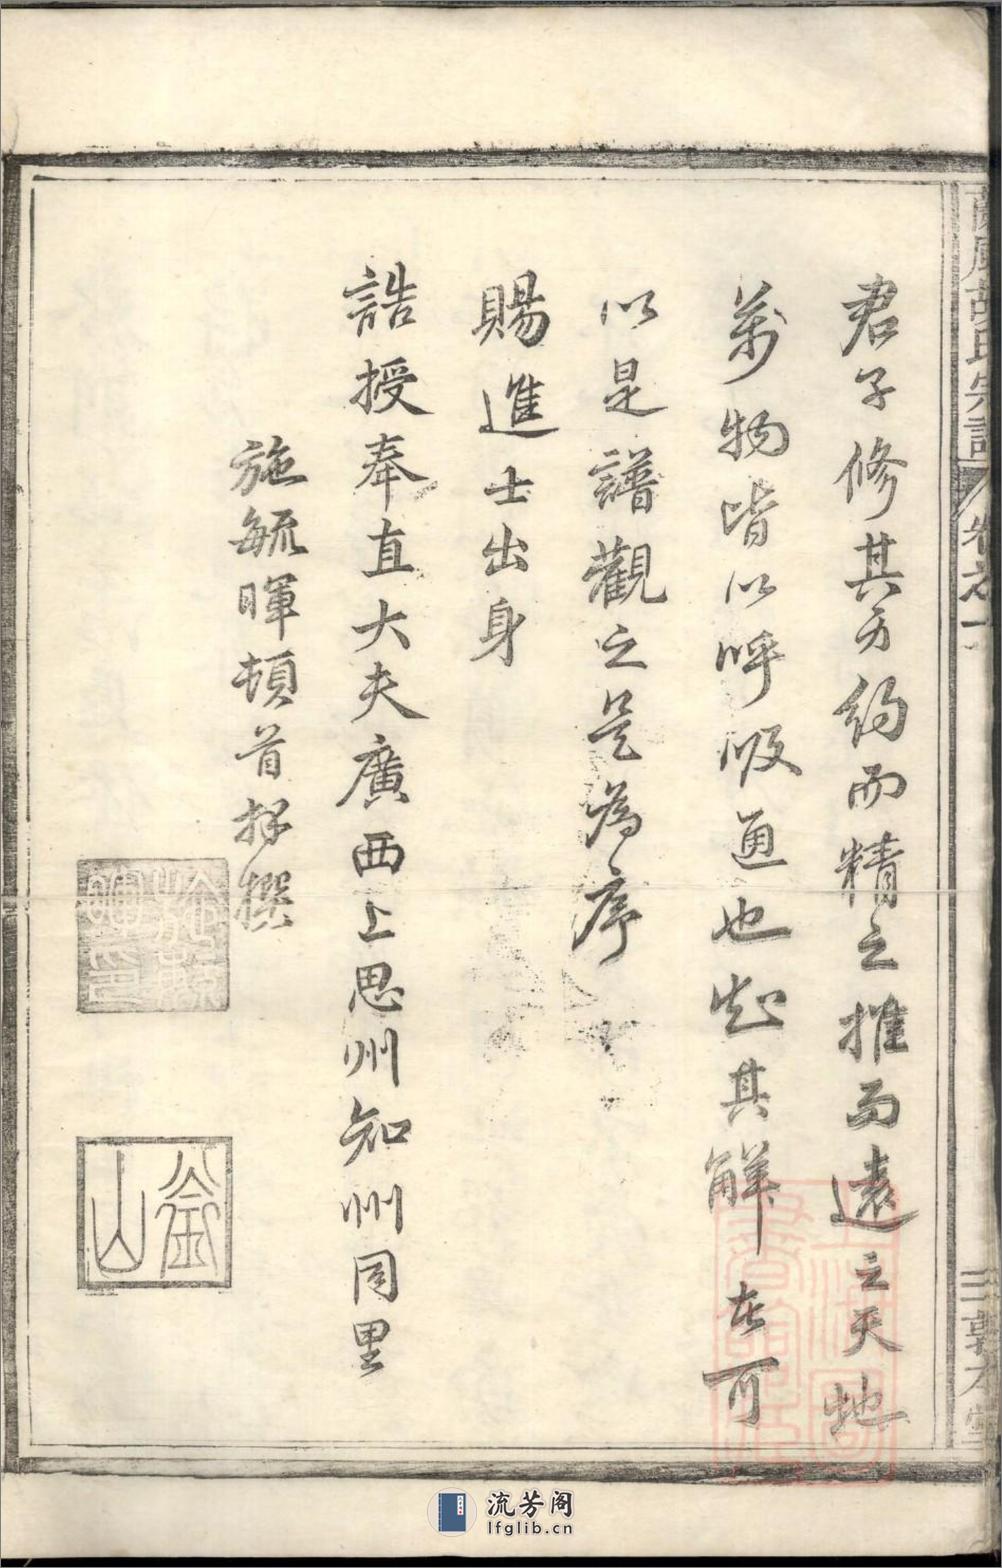 君子修其身約而精之推而遠之天地
萬物皆以呼吸通也知其解者可
以是譜觀之是為序
賜進士出身
誥授奉直大夫廣西上思州知州同里
施毓暉頓首拜撰
胡氏宗譜 卷之
三 敦本堂
流芳阁
lfglib.cn